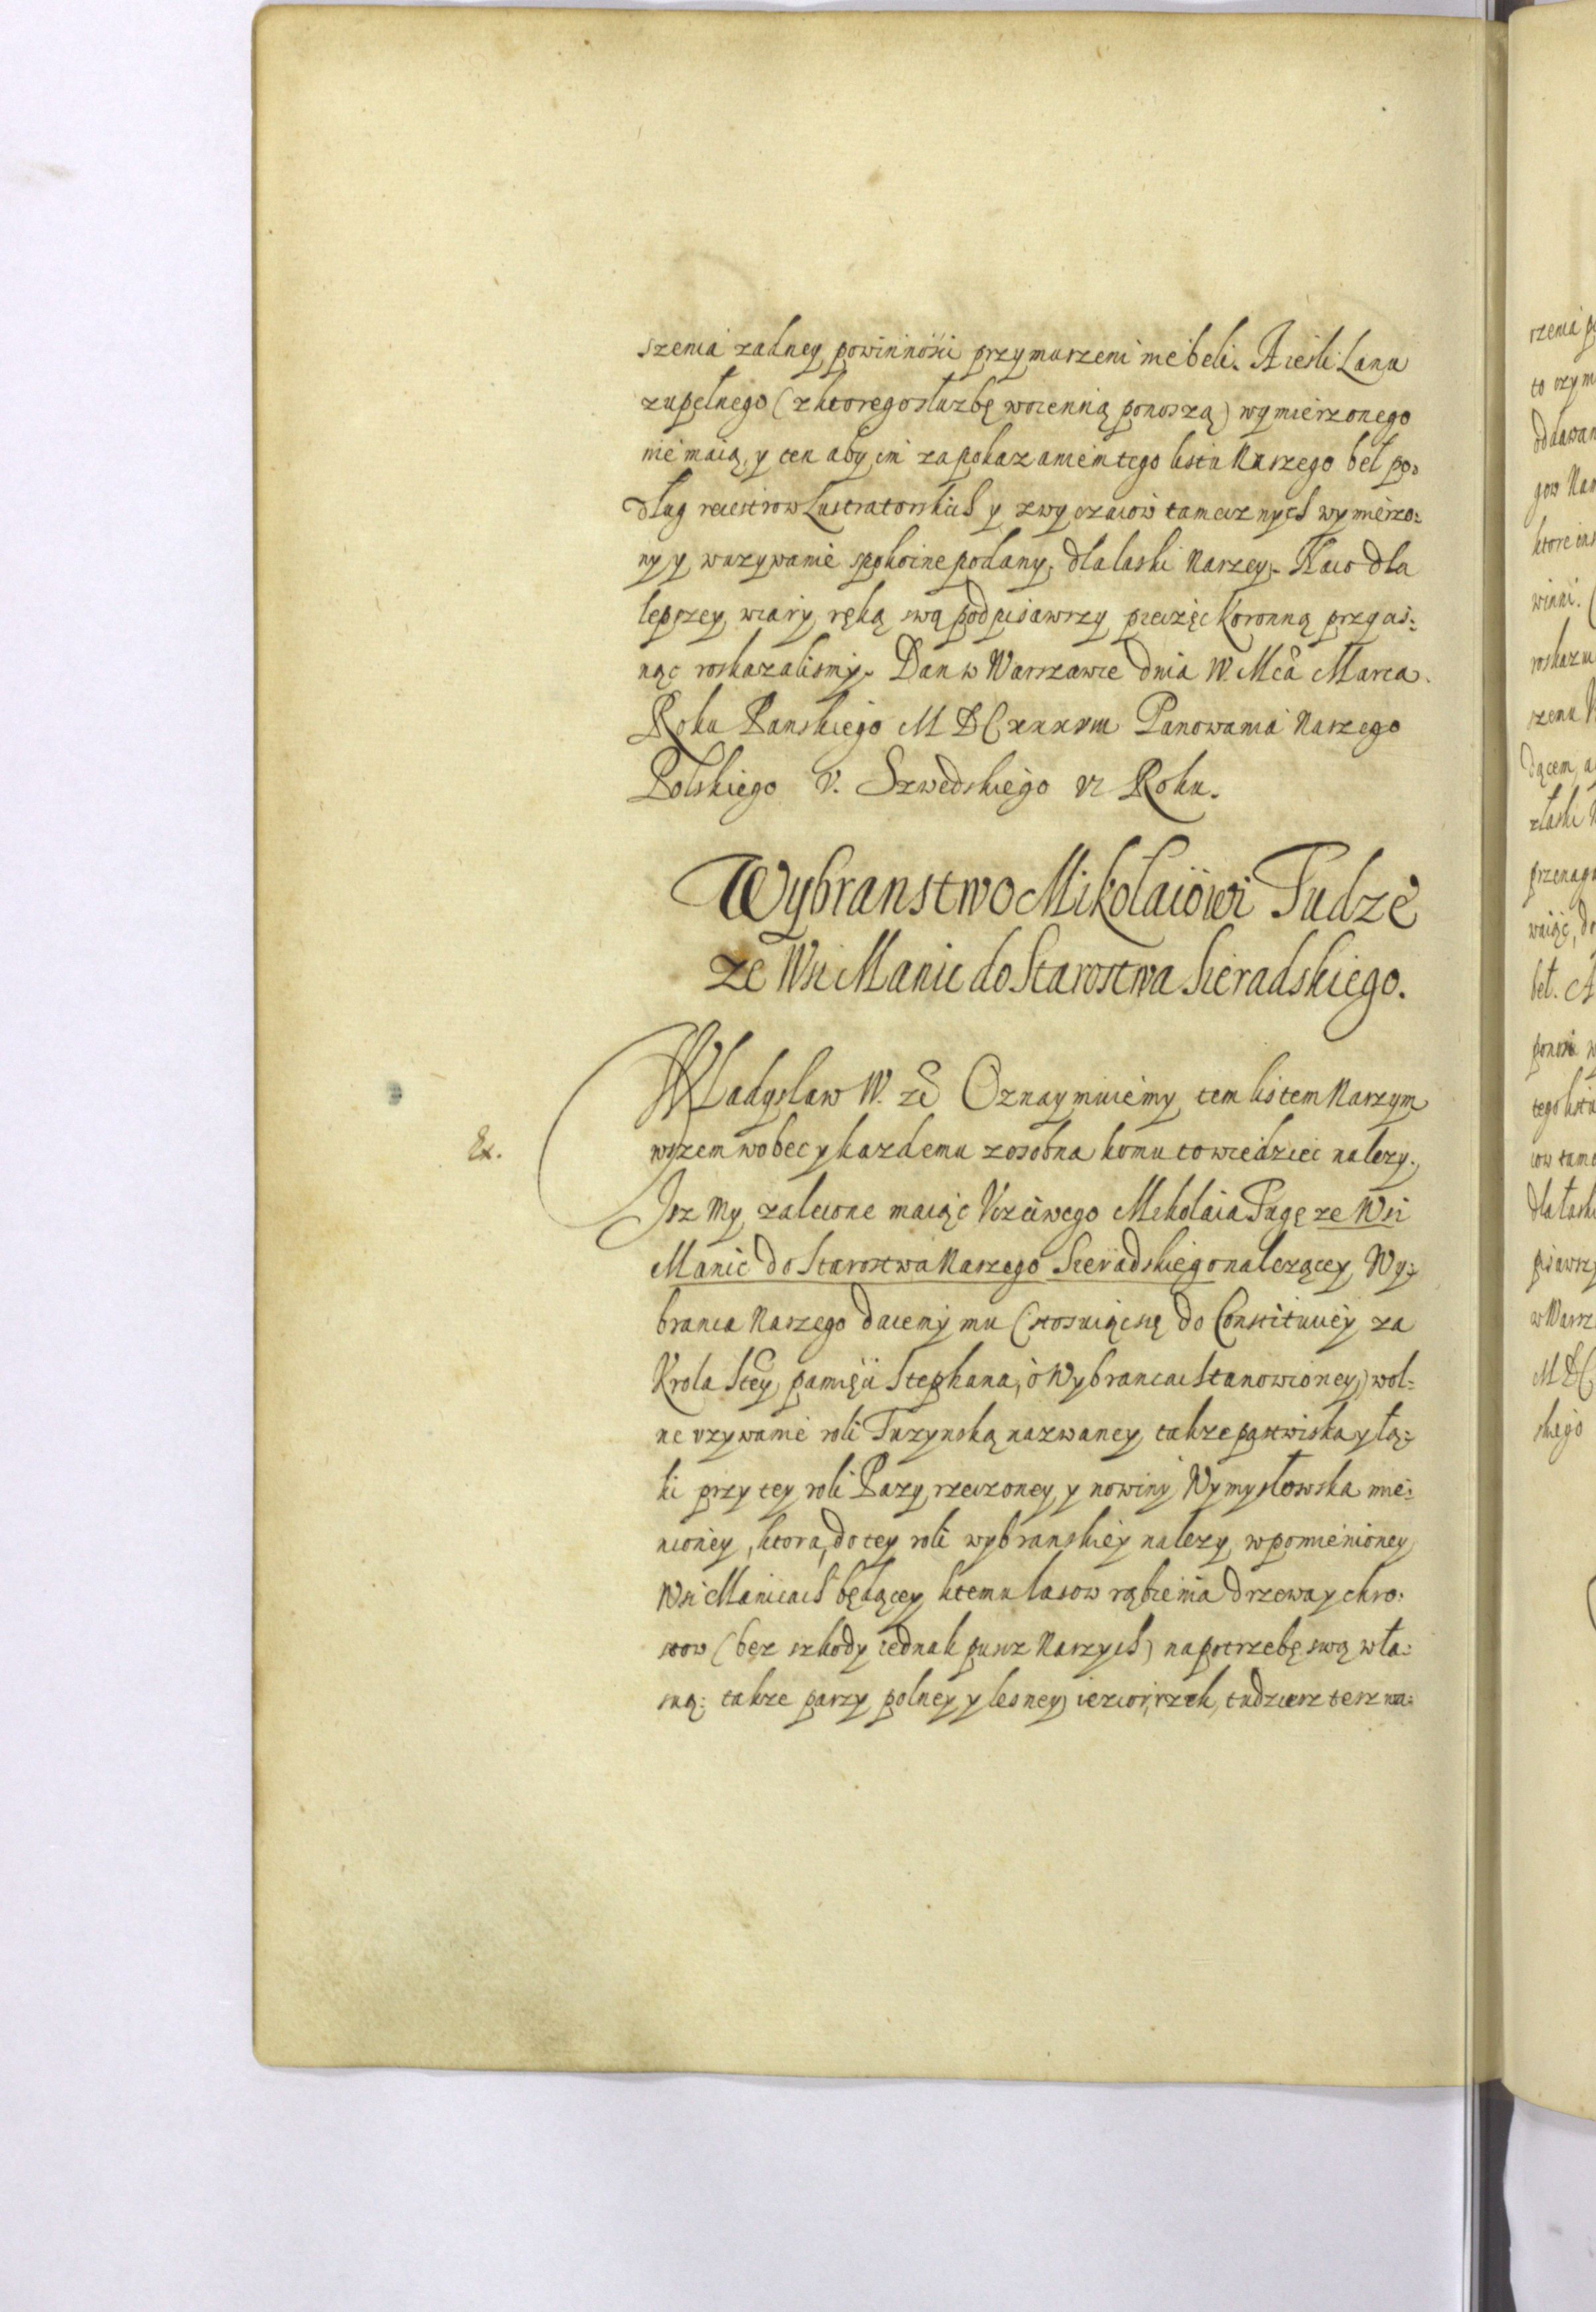 szenia zadney powinnosci przymuszeni nie beli. A iesli Lanu
zupełnego (z ktorego słuzbę woienną ponoszą) wymierzonego
nie maią, y ten aby im za pokazaniem tego listu Naszego beł po-
dług reiestrow Lustratorskich y zwyczaiow tamecznych wymierzo:
ny y wuzywanie spokoine podany, dla laski Naszey. Naco dla
lepszey wiary ręką swą podpisawszy pieczęc Koronną przycis:
nąc roskazalismy. Dan w Warszawie dnia W. Mca Marca.
Roku Panskiego M DC xxxvIII Panowania Naszego
Polskiego V. Szwedskiego VI Roku.
Wybranstwo Mikolaiowi Fudze
ze Wsi Manic do Starostwa Sieradskiego.
Wladyslaw IV. Oznaymuiemy tem listem Naszym
wszem wobec y kazdemu zosobna komu to wiedziec nalezy.
Ex.
Isz My zalecone maiąc Vczciwego Mikolaia Fugę ze Wsi
Manic do Starostwa Naszego Sieradskiego nalezącey, Wy:
branca Naszego daiemy mu (stosuiąc się do Constituciey za
Krola Stey pamięci Stephana, o Wybrancach stanowioney) wol:
ne vzywanie roli Tuzynską nazwaney, takze pastwiska y łą:
ki przy tey roli Pazy rzeczoney, y nowiny Wymysłowska mie:
nioney, ktora do tey roli wybranskiey nalezy, w pomienioney
Wsi Manicach będącey, ktemu lasow rąbienia drzewa y chro:
stow (bez szkody iednak puscz Naszych) na potrzebę swą wła:
sną: takze paszy polney y lesney, iezior, rzek, tudziesz tesz na: